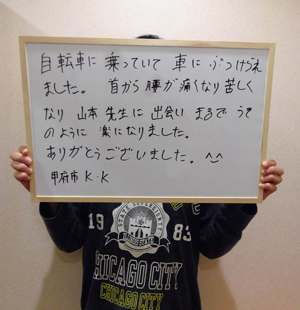 自転車に 乗っていて 車に ぶつけられ
ました。 首から 腰が 痛くなり 苦しく
なり 山本 先生に 出会い まるで うそ
のように 楽に なりました。
ありがとうございました。^^
甲府市 K・K
19 83
CHICAGO CITY
CHICAGO CITY